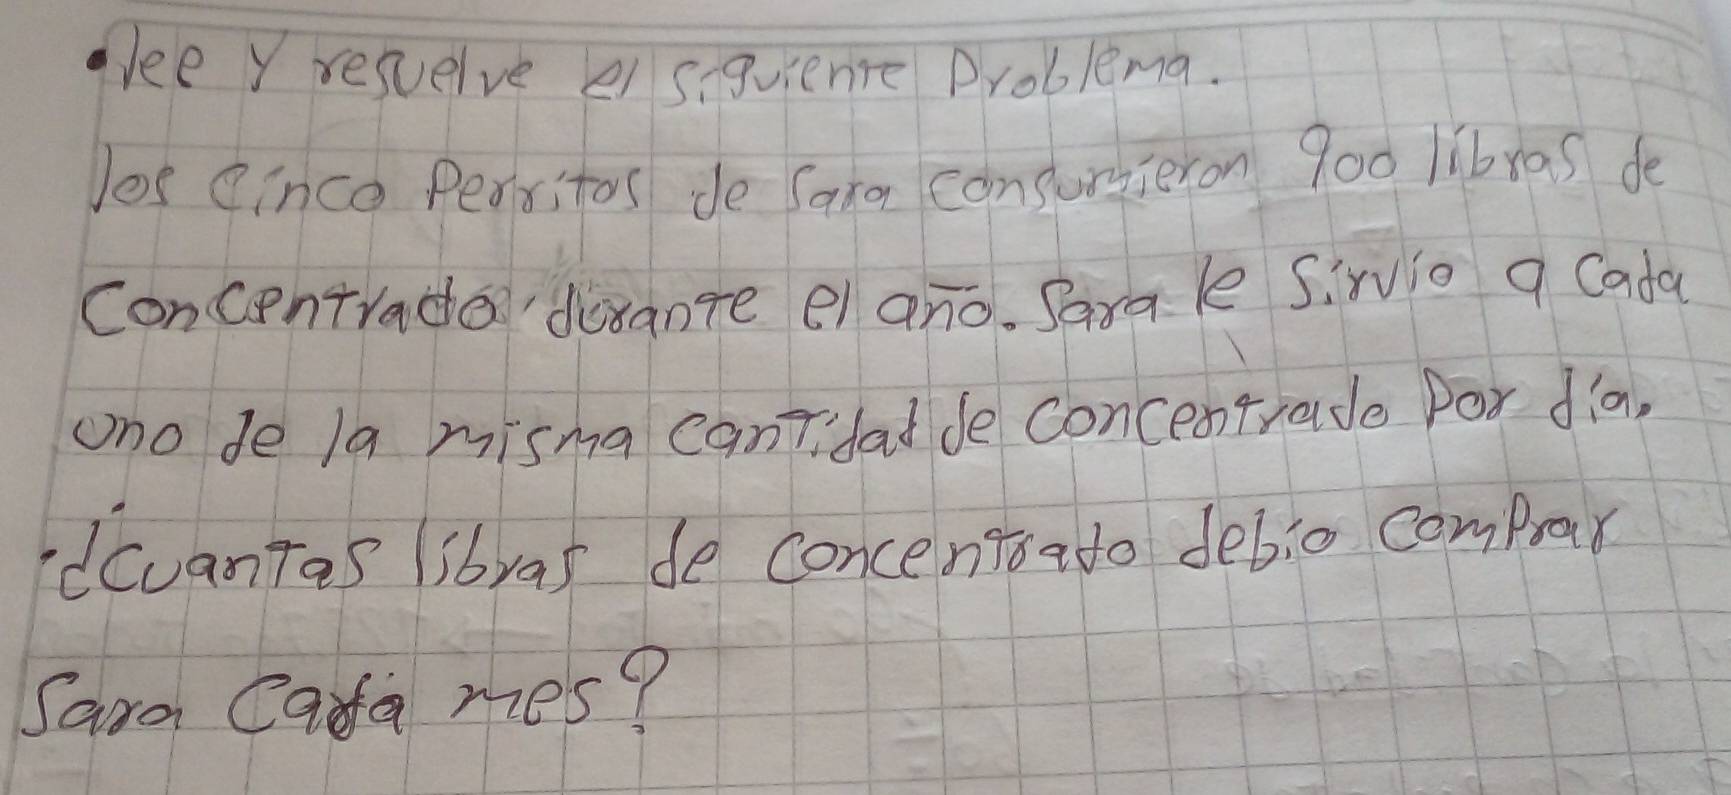 • lee y resuelve el siguiente problema.
los cinco perritos de Sara consumieron 900 libras de
Concentrado durante el año. Sara le Sirvio a cada
uno de la misma cantidad de concentrado por día.
• ¿Cuantas libras de concentrado debio comprar
Sara Cada mes?